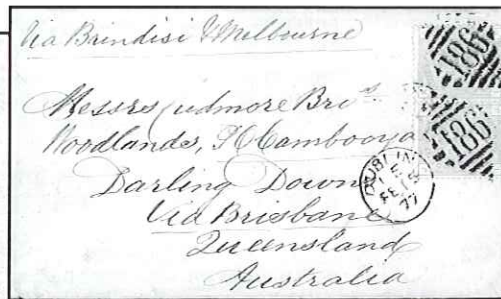 Via Brindisi & Melbourne
Messrs Cudmore Bro^s.
Woodlands, P O Cambooya
Darling Downs
Via Brisbane
Queensland
Australia
186
186
DUBLIN
FE
77